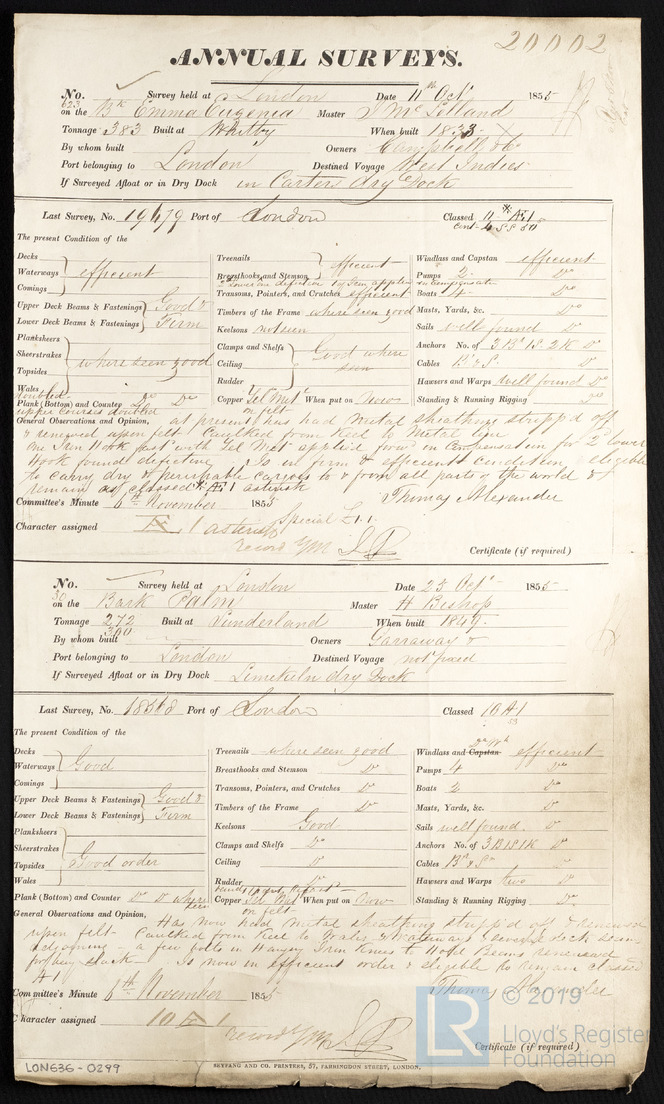 20002
ANNUAL SURVEYS.
No. 623 Survey held at London Date 11th Oct 1855
on the Bk Emma Eugenia Master J McLelland
Tonnage 383 Built at Whitby When built 1833
By whom built Owners Campbell & Co
Port belonging to London Destined Voyage West Indies
If Surveyed Afloat or in Dry Dock in Carters dry Dock
Last Survey, No. 19479 Port of London Classed 11 * Æ1
The present Condition of the
Decks
Waterways efficient
Comings
Upper Deck Beams & Fastenings Good &
Lower Deck Beams & Fastenings Firm
Planksheers
Sheerstrakes where seen good
Topsides
Wales doubled
Plank (Bottom) and Counter Do Do
upper courses doubled
Treenails efficient
Breasthooks and Stemson
Transoms, Pointers, and Crutches efficient
Timbers of the Frame where seen good
Keelsons not seen
Clamps and Shelfs Good where
Ceiling seen
Rudder
Copper Yel Met on felt When put on Now
Windlass and Capstan efficient
Pumps 2 Do
Boats 4 Do
Masts, Yards, &c. Do
Sails well found Do
Anchors No. of 3 B 1 S 2 K Do
Cables B & S Do
Hawsers and Warps well found Do
Standing & Running Rigging Do
General Observations and Opinion, at present has had metal sheathing stripp'd off
& renewed upon felt. Caulked from Keel to Metal line
One Iron Hook fast with Yel Met applied forwd in compensation for 2 lower
Hook found defective. Is in firm & efficient condition eligible
to carry dry & perishable cargoes to & from all parts of the world &
remain as classed * Æ 1 asterisk Thomas Alexander
Committee's Minute 6th November 1855
Character assigned Æ 1 asterisk Special
record YM
Certificate (if required)
No. 30 Survey held at London Date 25 Oct 1855
on the Bark Palm Master H Bishop
Tonnage 272 300 Built at Sunderland When built 1849.
By whom built Owners Garraway &
Port belonging to London Destined Voyage not fixed
If Surveyed Afloat or in Dry Dock Limekiln dry Dock
Last Survey, No. 18568 Port of London Classed 10 A1
The present Condition of the
Decks
Waterways Good
Comings
Upper Deck Beams & Fastenings Good &
Lower Deck Beams & Fastenings Firm
Planksheers
Sheerstrakes
Topsides Good order
Wales
Plank (Bottom) and Counter Do Do where seen
Treenails where seen good
Breasthooks and Stemson Do
Transoms, Pointers, and Crutches Do
Timbers of the Frame Do
Keelsons Good
Clamps and Shelfs Do
Ceiling Do
Rudder Do
Copper Yel Met on felt When put on Now
Windlass and Capstan efficient
Pumps 4 Do
Boats 2 Do
Masts, Yards, &c. Do
Sails well found. Do
Anchors No. of 3 B 1 S 1 K Do
Cables Bs & Sn Do
Hawsers and Warps two Do
Standing & Running Rigging Do
General Observations and Opinion, Has now had metal sheathing stripp'd off & renewed
upon felt - Caulked from Keel to Wales & Waterways & several deck seams
adjoining - a few bolts in Hanging Iron Knees to Hold Beams renewed
Is now in efficient order & eligible to remain classed
A1
Committee's Minute 6th November 1855
Character assigned 10 A 1
record YM
Certificate (if required)
LON636-0299
SEYFANG AND CO. PRINTERS, 57, FARRINGDON STREET, LONDON.
LR © 2019
Lloyd's Register
Foundation